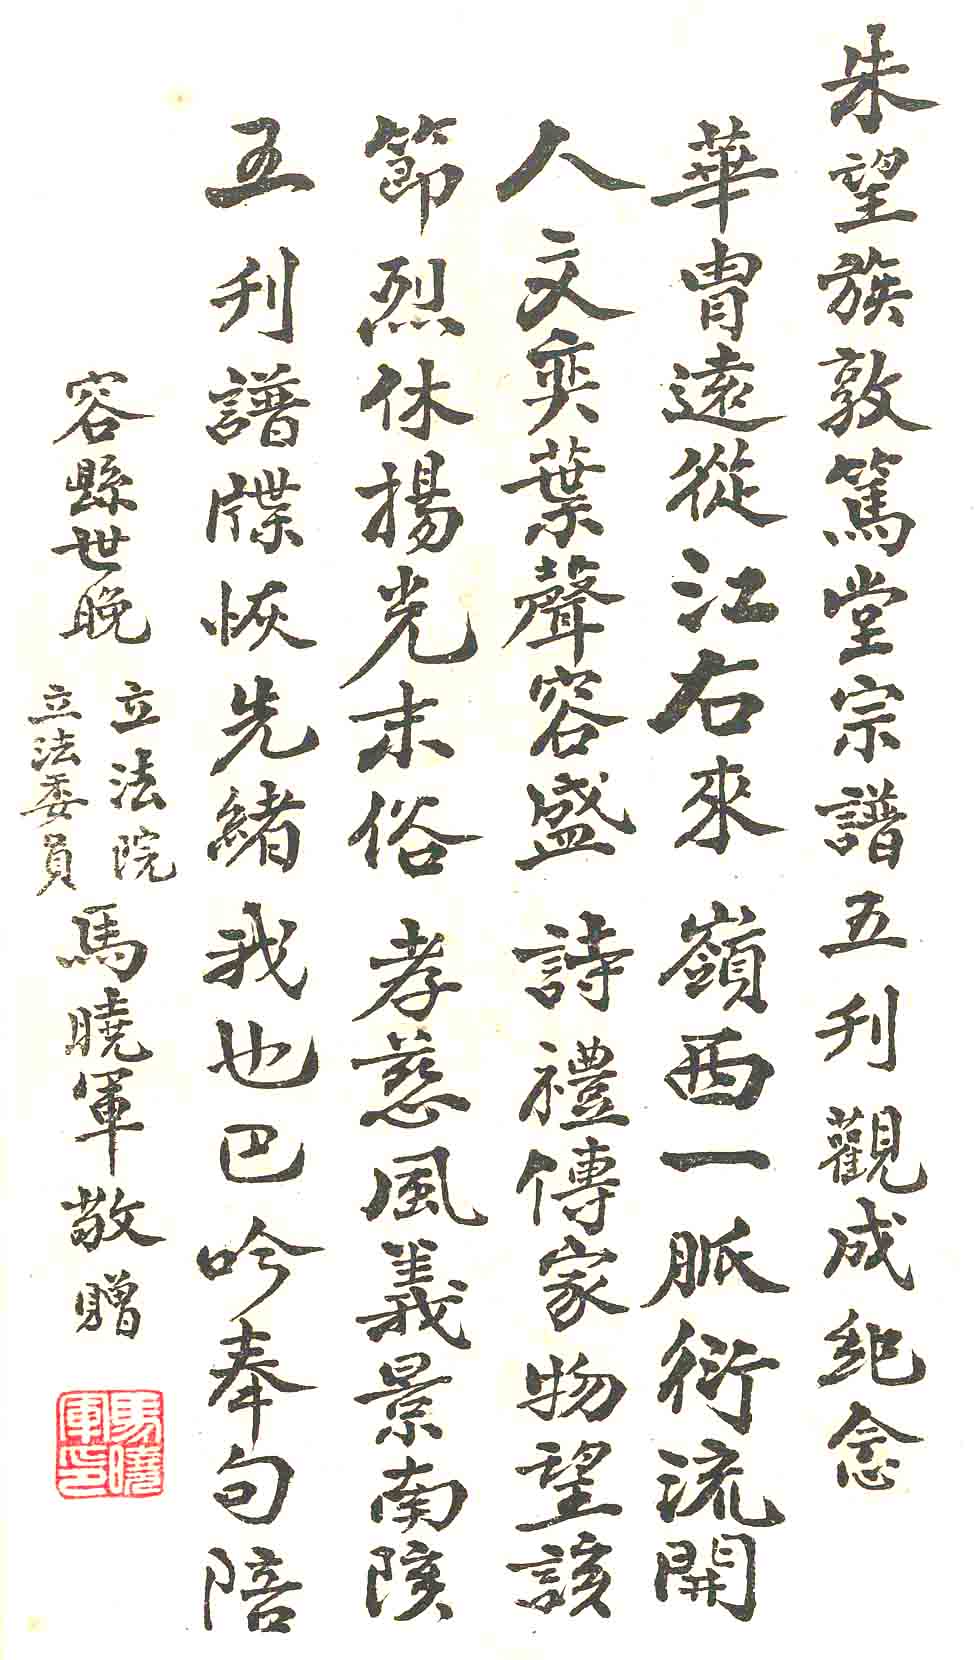 朱望族敦篤堂宗譜五刊觀成紀念
華胄遠從江右來嶺西一脈衍流開
人文奕葉聲容盛詩禮傳家物望該
節烈休揚光末俗孝慈風義景南陔
五刊譜牒恢先緒我也巴吟奉句陪
容縣世晚
立法院
立法委員
馬曉軍敬贈
馬曉軍印